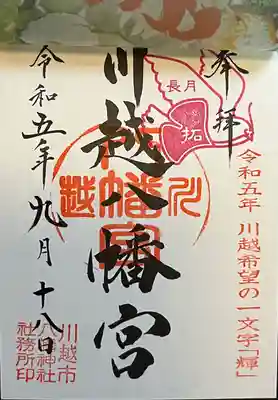 奉拝
長月
拓
令和五年 川越希望の一文字「輝」
川越八幡宮
川越
八幡宮
令和五年九月十八日
川越市
八幡神社
社務所印